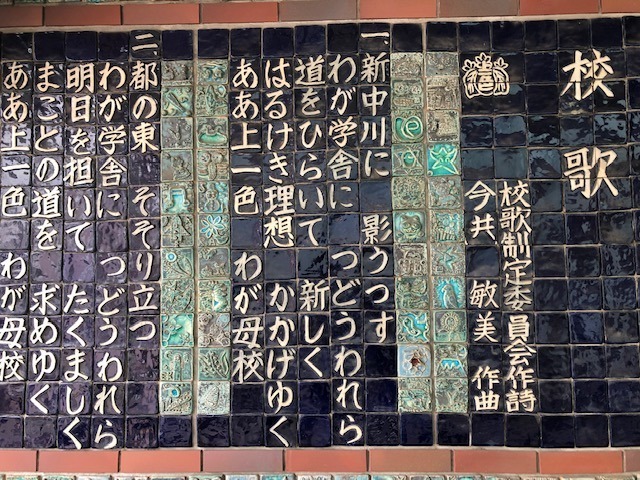 校歌
校歌制定委員会作詩
今井敏美 作曲
一、新中川に 影うつす
わが学舎に つどうわれら
道をひらいて 新しく
はるけき理想 かかげゆく
ああ上一色 わが母校
二、都の東 そそり立つ
わが学舎に つどうわれら
明日を担いて たくましく
まことの道を 求めゆく
ああ上一色 わが母校